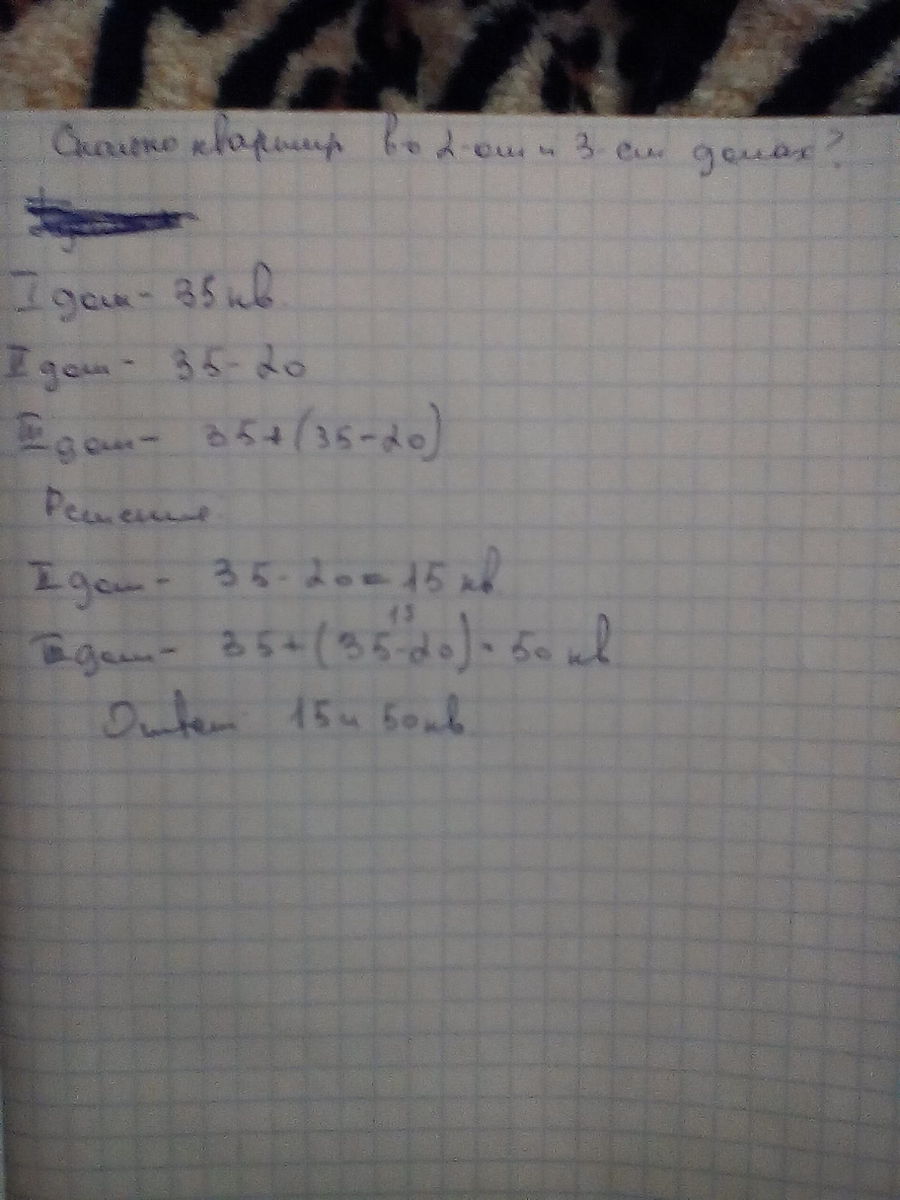 Сколько квартир во 2-ом и 3-ем домах?
I дом - 35 кв.
II дом - 35-20
III дом - 35+(35-20)
Решение
II дом - 35-20=15 кв
III дом - 35+(35-20)=50 кв
15
Ответ 15 и 50 кв